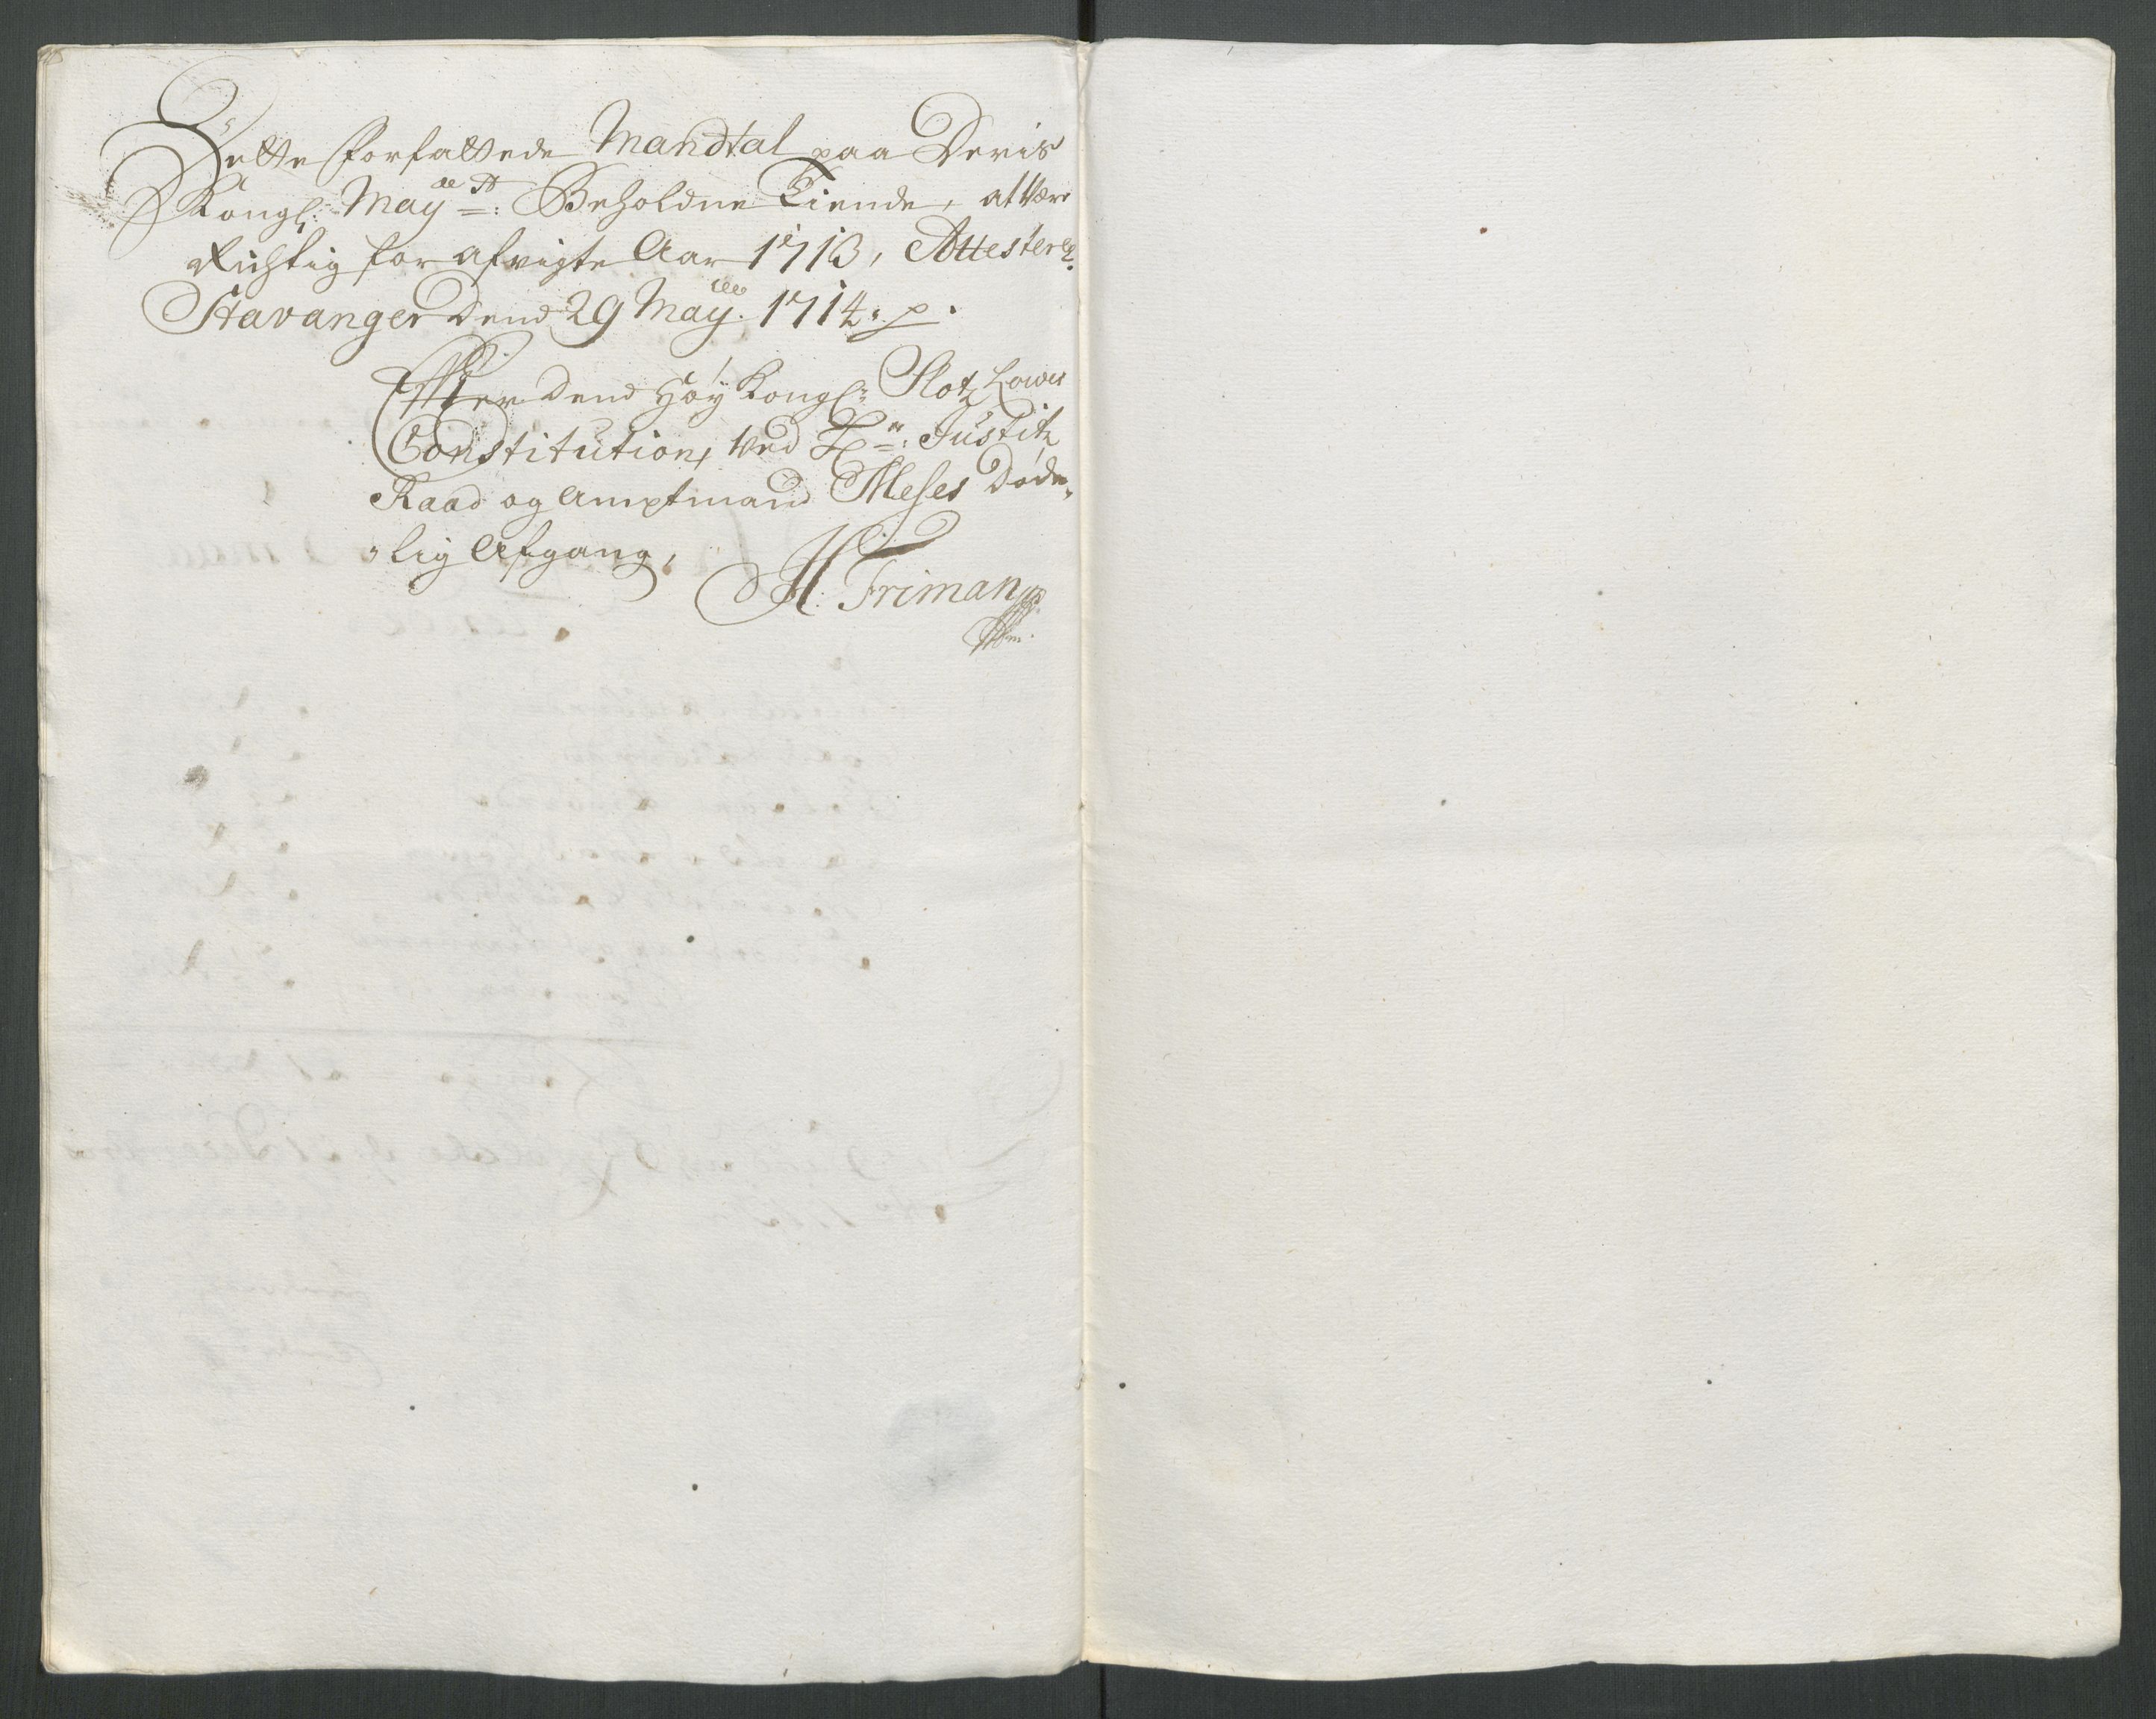 Dette forfattede Mandtal paa Deris
Kongl: May:tt Beholdne Tiende, at være
Richtig for afvigte Aar 1713, Attesterer.
Stavanger Dend 29 May. 1714. p.
Effter Dend Høy Kongl: Slotz Lowes
Constitution, ved Hr: Justitz
Raad og Amptmand Meses Døde-
-lig Afgang,
H: Friman